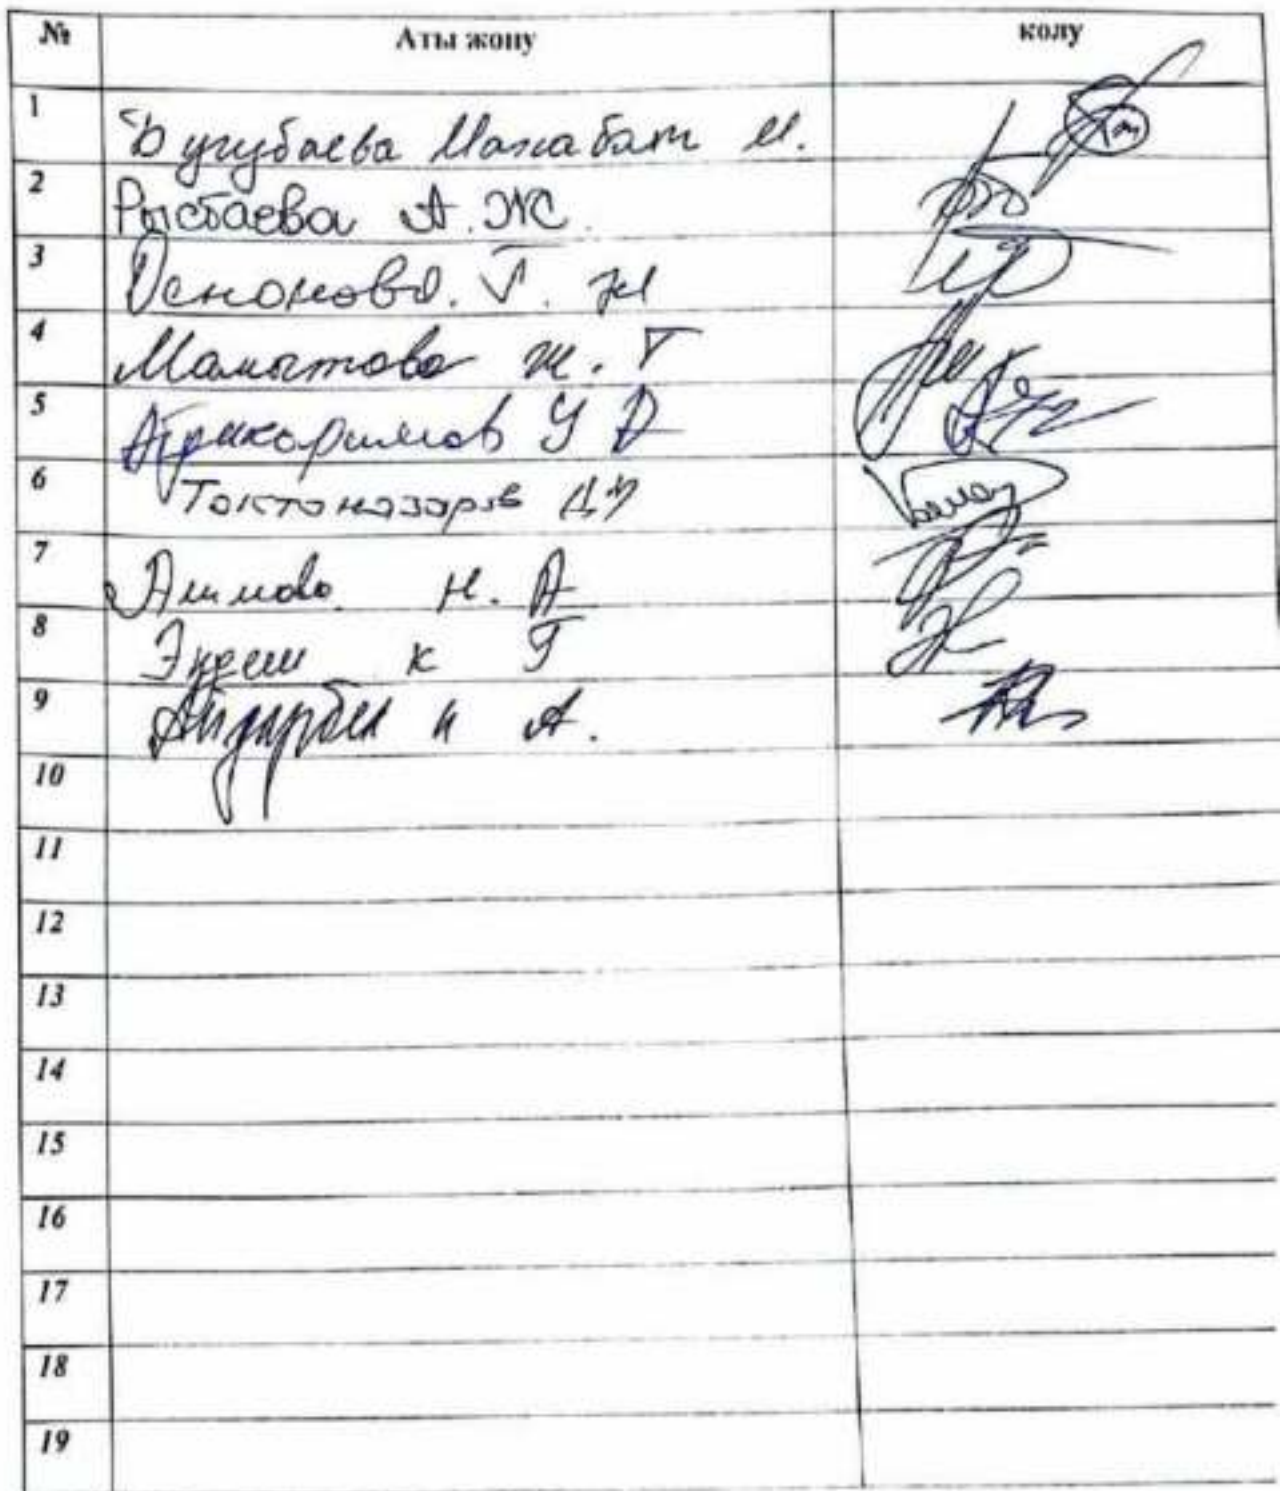 № Аты жону колу
1 Бугубаева Махабат М.
2 Рысбаева А. Ж.
3 Осмонова. Г. Ж
4 Мамытова Ж. Г
5 У Д
6 Токтоназаров
7 Алимова Н. А
8 Экеш к Г
9 Айдарбек к А.
10
11
12
13
14
15
16
17
18
19